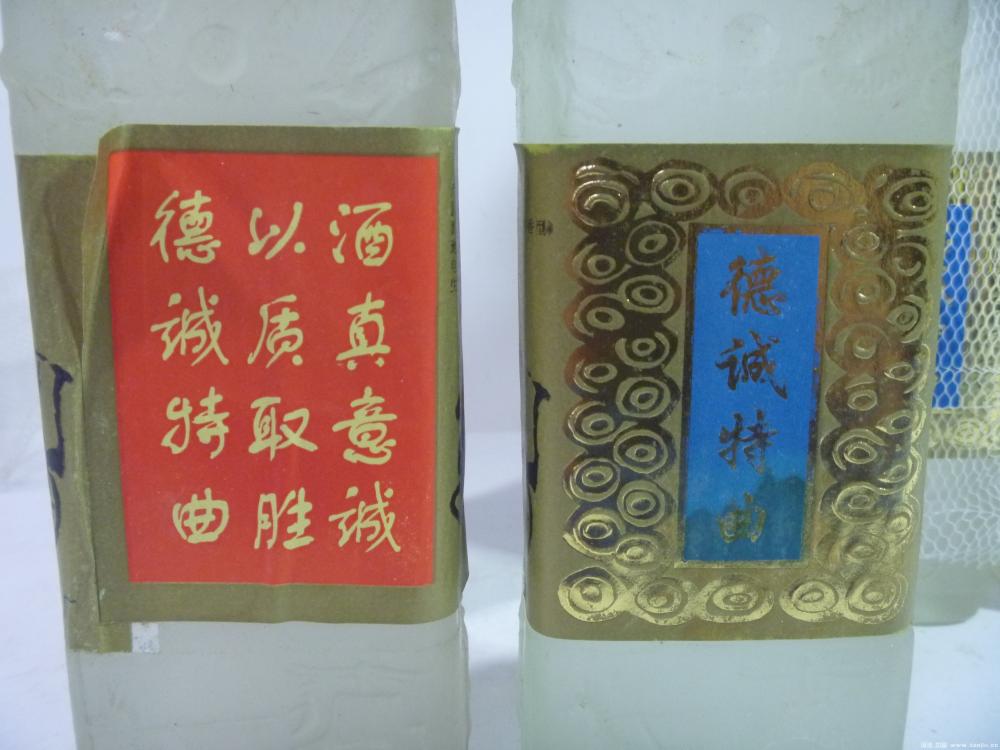 酒真意诚
以质取胜
德诚特曲
德诚特曲